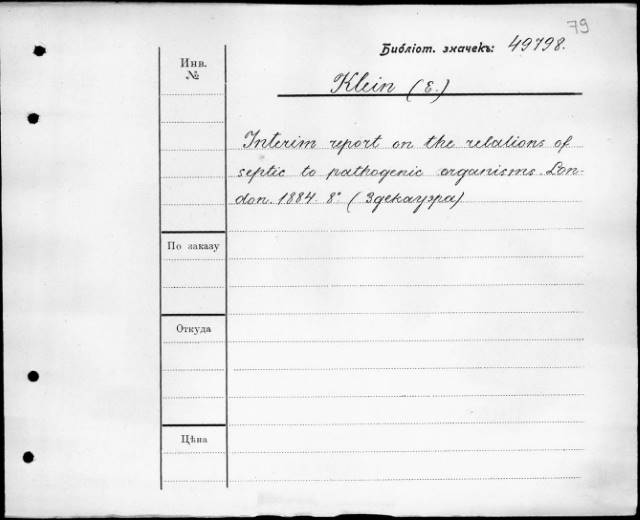 79
Библіот. значекъ: 49798.
Инв.
№
Klein (E.)
Interim report on the relations of
septic to pathogenic organisms. Lon-
don. 1884. 8° (Здекауэра)
По заказу
Откуда
Цѣна